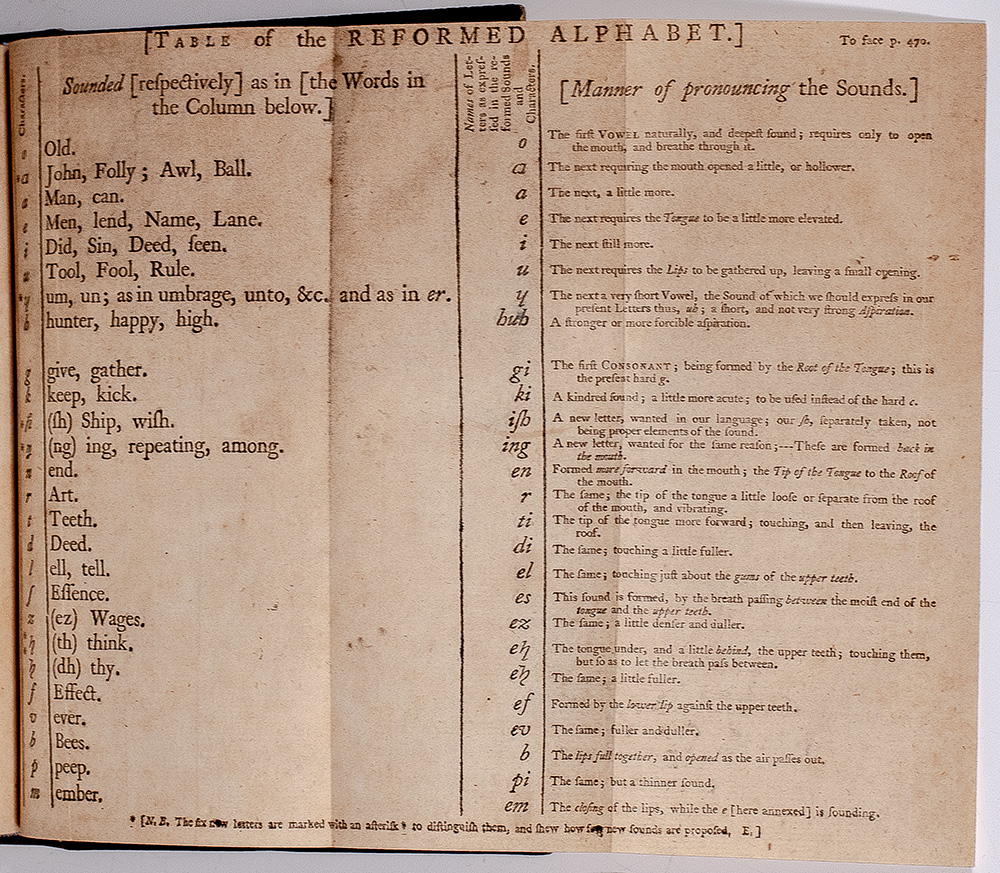 [TABLE of the REFORMED ALPHABET.]
To face p. 470.
Characters.
Sounded [reſpectively] as in [the Words in
the Column below.]
Names of Let-
ters as expreſ-
ſed in the re-
formed Sounds
and
Characters.
[Manner of pronouncing the Sounds.]
o Old. o The firſt VOWEL naturally, and deepeſt ſound; requires only to open
the mouth, and breathe through it.
*ɑ John, Folly; Awl, Ball. ɑ The next requiring the mouth opened a little, or hollower.
a Man, can. a The next, a little more.
e Men, lend, Name, Lane. e The next requires the Tongue to be a little more elevated.
i Did, Sin, Deed, ſeen. i The next ſtill more.
u Tool, Fool, Rule. u The next requires the Lips to be gathered up, leaving a ſmall opening.
*ɥ um, un; as in umbrage, unto, &c. and as in er. ɥ The next a very ſhort Vowel, the Sound of which we ſhould expreſs in our
preſent Letters thus, uh; a ſhort, and not very ſtrong Aſpiration.
h hunter, happy, high. huh A ſtronger or more forcible aſpiration.
g give, gather. gi The firſt CONSONANT; being formed by the Root of the Tongue; this is
the preſent hard g.
k keep, kick. ki A kindred ſound; a little more acute; to be uſed inſtead of the hard c.
(ſh) Ship, wiſh. iſh A new letter, wanted in our language; our ſh, ſeparately taken, not
being proper elements of the ſound.
*ŋ (ng) ing, repeating, among. ing A new letter, wanted for the ſame reaſon;---Theſe are formed back in
the mouth.
n end. en Formed more forward in the mouth; the Tip of the Tongue to the Roof of
the mouth.
r Art. r The ſame; the tip of the tongue a little looſe or ſeparate from the roof
of the mouth, and vibrating.
t Teeth. ti The tip of the tongue more forward; touching, and then leaving, the
roof.
d Deed. di The ſame; touching a little fuller.
l ell, tell. el The ſame; touching juſt about the gums of the upper teeth.
ſ Eſſence. es This ſound is formed, by the breath paſſing between the moiſt end of the
tongue and the upper teeth.
z (ez) Wages. ez The ſame; a little denſer and duller.
(th) think. The tongue under, and a little behind, the upper teeth; touching them,
but ſo as to let the breath paſs between.
(dh) thy. The ſame; a little fuller.
f Effect. ef Formed by the lower lip againſt the upper teeth.
v ever. ev The ſame; fuller and duller.
b Bees. b The lips full together, and opened as the air paſſes out.
p peep. pi The ſame; but a thinner ſound.
m ember. em The cloſing of the lips, while the e [here annexed] is ſounding.
* [N. B. The ſix new letters are marked with an aſteriſk * to diſtinguiſh them, and ſhew how few new ſounds are propoſed, E.]